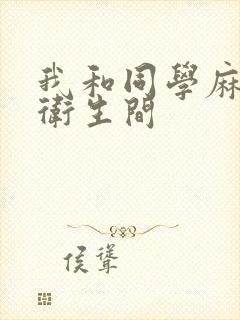 我和同學麻
衛生間
侯聳